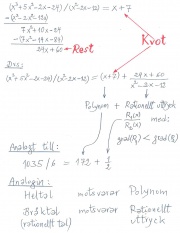 (x³+5x²-2x-24)/(x²-2x-12) = x+7
-(x³-2x²-12x)
7x²+10x-24
-(7x²-14x-84)
24x+60
Rest
Kvot
Dvs:
(x³+5x²-2x-24)/(x²-2x-12) = (x+7) + 24x+60 / x²-2x-12
Polynom + Rationellt uttryck
med:
grad(R) < grad(Q)
Analogt till:
1035/6 = 172 + 1/2
Analogin:
Heltal motsvarar Polynom
Bråktal motsvarar Rationellt
(rationellt tal) uttryck